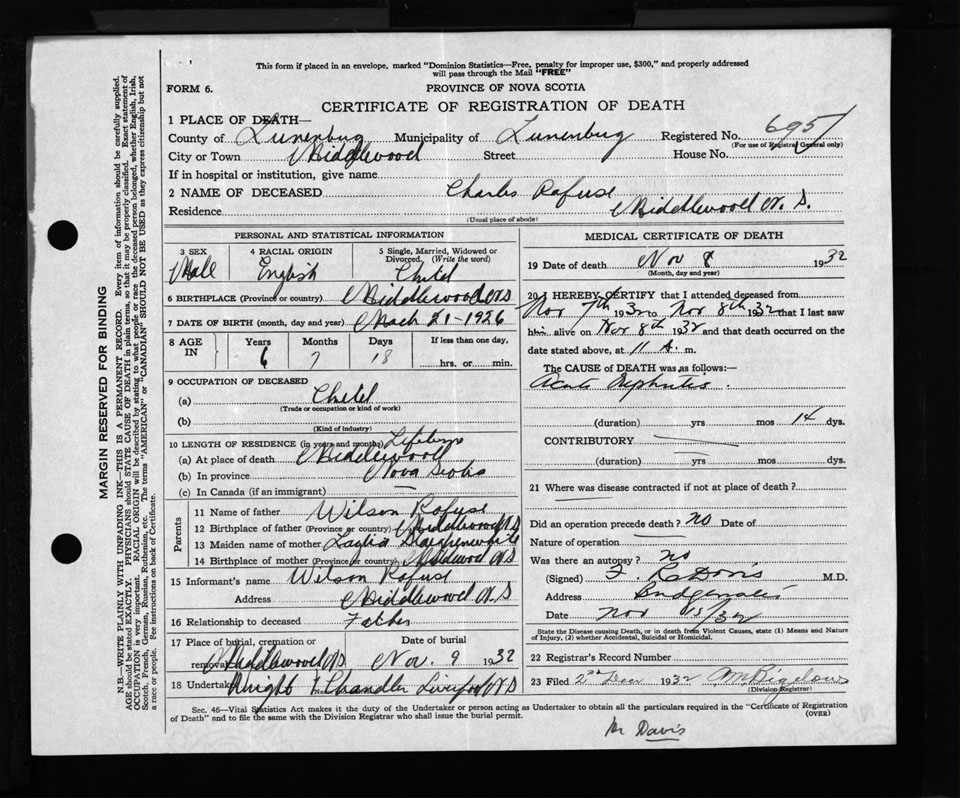 This form if placed in an envelope, marked "Dominion Statistics—Free, penalty for improper use, $300," and properly addressed
will pass through the Mail "FREE"
FORM 6.
PROVINCE OF NOVA SCOTIA
CERTIFICATE OF REGISTRATION OF DEATH
1 PLACE OF DEATH—
County of Lunenburg Municipality of Lunenburg Registered No. 6951
(For use of Registrar General only)
City or Town Middlewood Street House No.
If in hospital or institution, give name
2 NAME OF DECEASED Charles Rafuse
Residence Middlewood N. S.
(Usual place of abode)
PERSONAL AND STATISTICAL INFORMATION
3 SEX 4 RACIAL ORIGIN 5 Single, Married, Widowed or
Divorced. (Write the word)
Male English Child
6 BIRTHPLACE (Province or country) Middlewood NS
7 DATE OF BIRTH (month, day and year) Mach 21-1926
8 AGE IN Years Months Days If less than one day,
6 7 18 hrs. or min.
9 OCCUPATION OF DECEASED
(a) Child
(Trade or occupation or kind of work)
(b)
(Kind of industry)
10 LENGTH OF RESIDENCE (in years and months) Lifetime
(a) At place of death Middlewood
(b) In province Nova Scotia
(c) In Canada (if an immigrant) —
Parents
11 Name of father Wilson Rafuse
12 Birthplace of father (Province or country) Middlewood NS
13 Maiden name of mother
14 Birthplace of mother (Province or country) NS
15 Informant's name Wilson Rafuse
Address Middlewood N. S
16 Relationship to deceased Father
17 Place of burial, cremation or Date of burial
removal Middlewood NS Nov. 9 1932
18 Undertaker Chandler Liverpool NS
MEDICAL CERTIFICATE OF DEATH
19 Date of death Nov 8 1932
(Month, day and year)
20 I HEREBY CERTIFY that I attended deceased from
Nov 7th 1932 to Nov 8th 1932 that I last saw
him alive on Nov 8th 1932 and that death occurred on
date stated above, at 11 A. m.
The CAUSE OF DEATH was as follows:—
Acute Nephritis.
(duration) yrs mos 14 dys.
CONTRIBUTORY
(duration) yrs mos dys.
21 Where was disease contracted if not at place of death?
Did an operation precede death? no Date of
Nature of operation
Was there an autopsy? no
(Signed) M.D.
Address Bridgewater
Date Nov 15/32
State the Disease causing Death, or in death from Violent Causes, state (1) Means and Nature
of Injury, (2) whether Accidental, Suicidal or Homicidal.
22 Registrar's Record Number
23 Filed 2nd Dec 1932 Bigelow
(Division Registrar)
Sec. 46—Vital Statistics Act makes it the duty of the Undertaker or person acting as Undertaker to obtain all the particulars required in the "Certificate of Registration
of Death" and to file the same with the Division Registrar who shall issue the burial permit.
(OVER)
Mr Davis
MARGIN RESERVED FOR BINDING
N.B.—WRITE PLAINLY WITH UNFADING INK—THIS IS A PERMANENT RECORD. Every item of information should be carefully supplied.
AGE should be stated EXACTLY. PHYSICIANS should STATE CAUSE OF DEATH in plain terms, so that it may be properly classified. Exact statement of
OCCUPATION is very important. RACIAL ORIGIN will be described by stating to what people or race the deceased person belonged, whether English, Irish,
Scotch, French, German, Russian, Ruthenian, etc. The terms "AMERICAN" or "CANADIAN" SHOULD NOT BE USED as they express citizenship but not
a race or people. See instructions on back of Certificate.